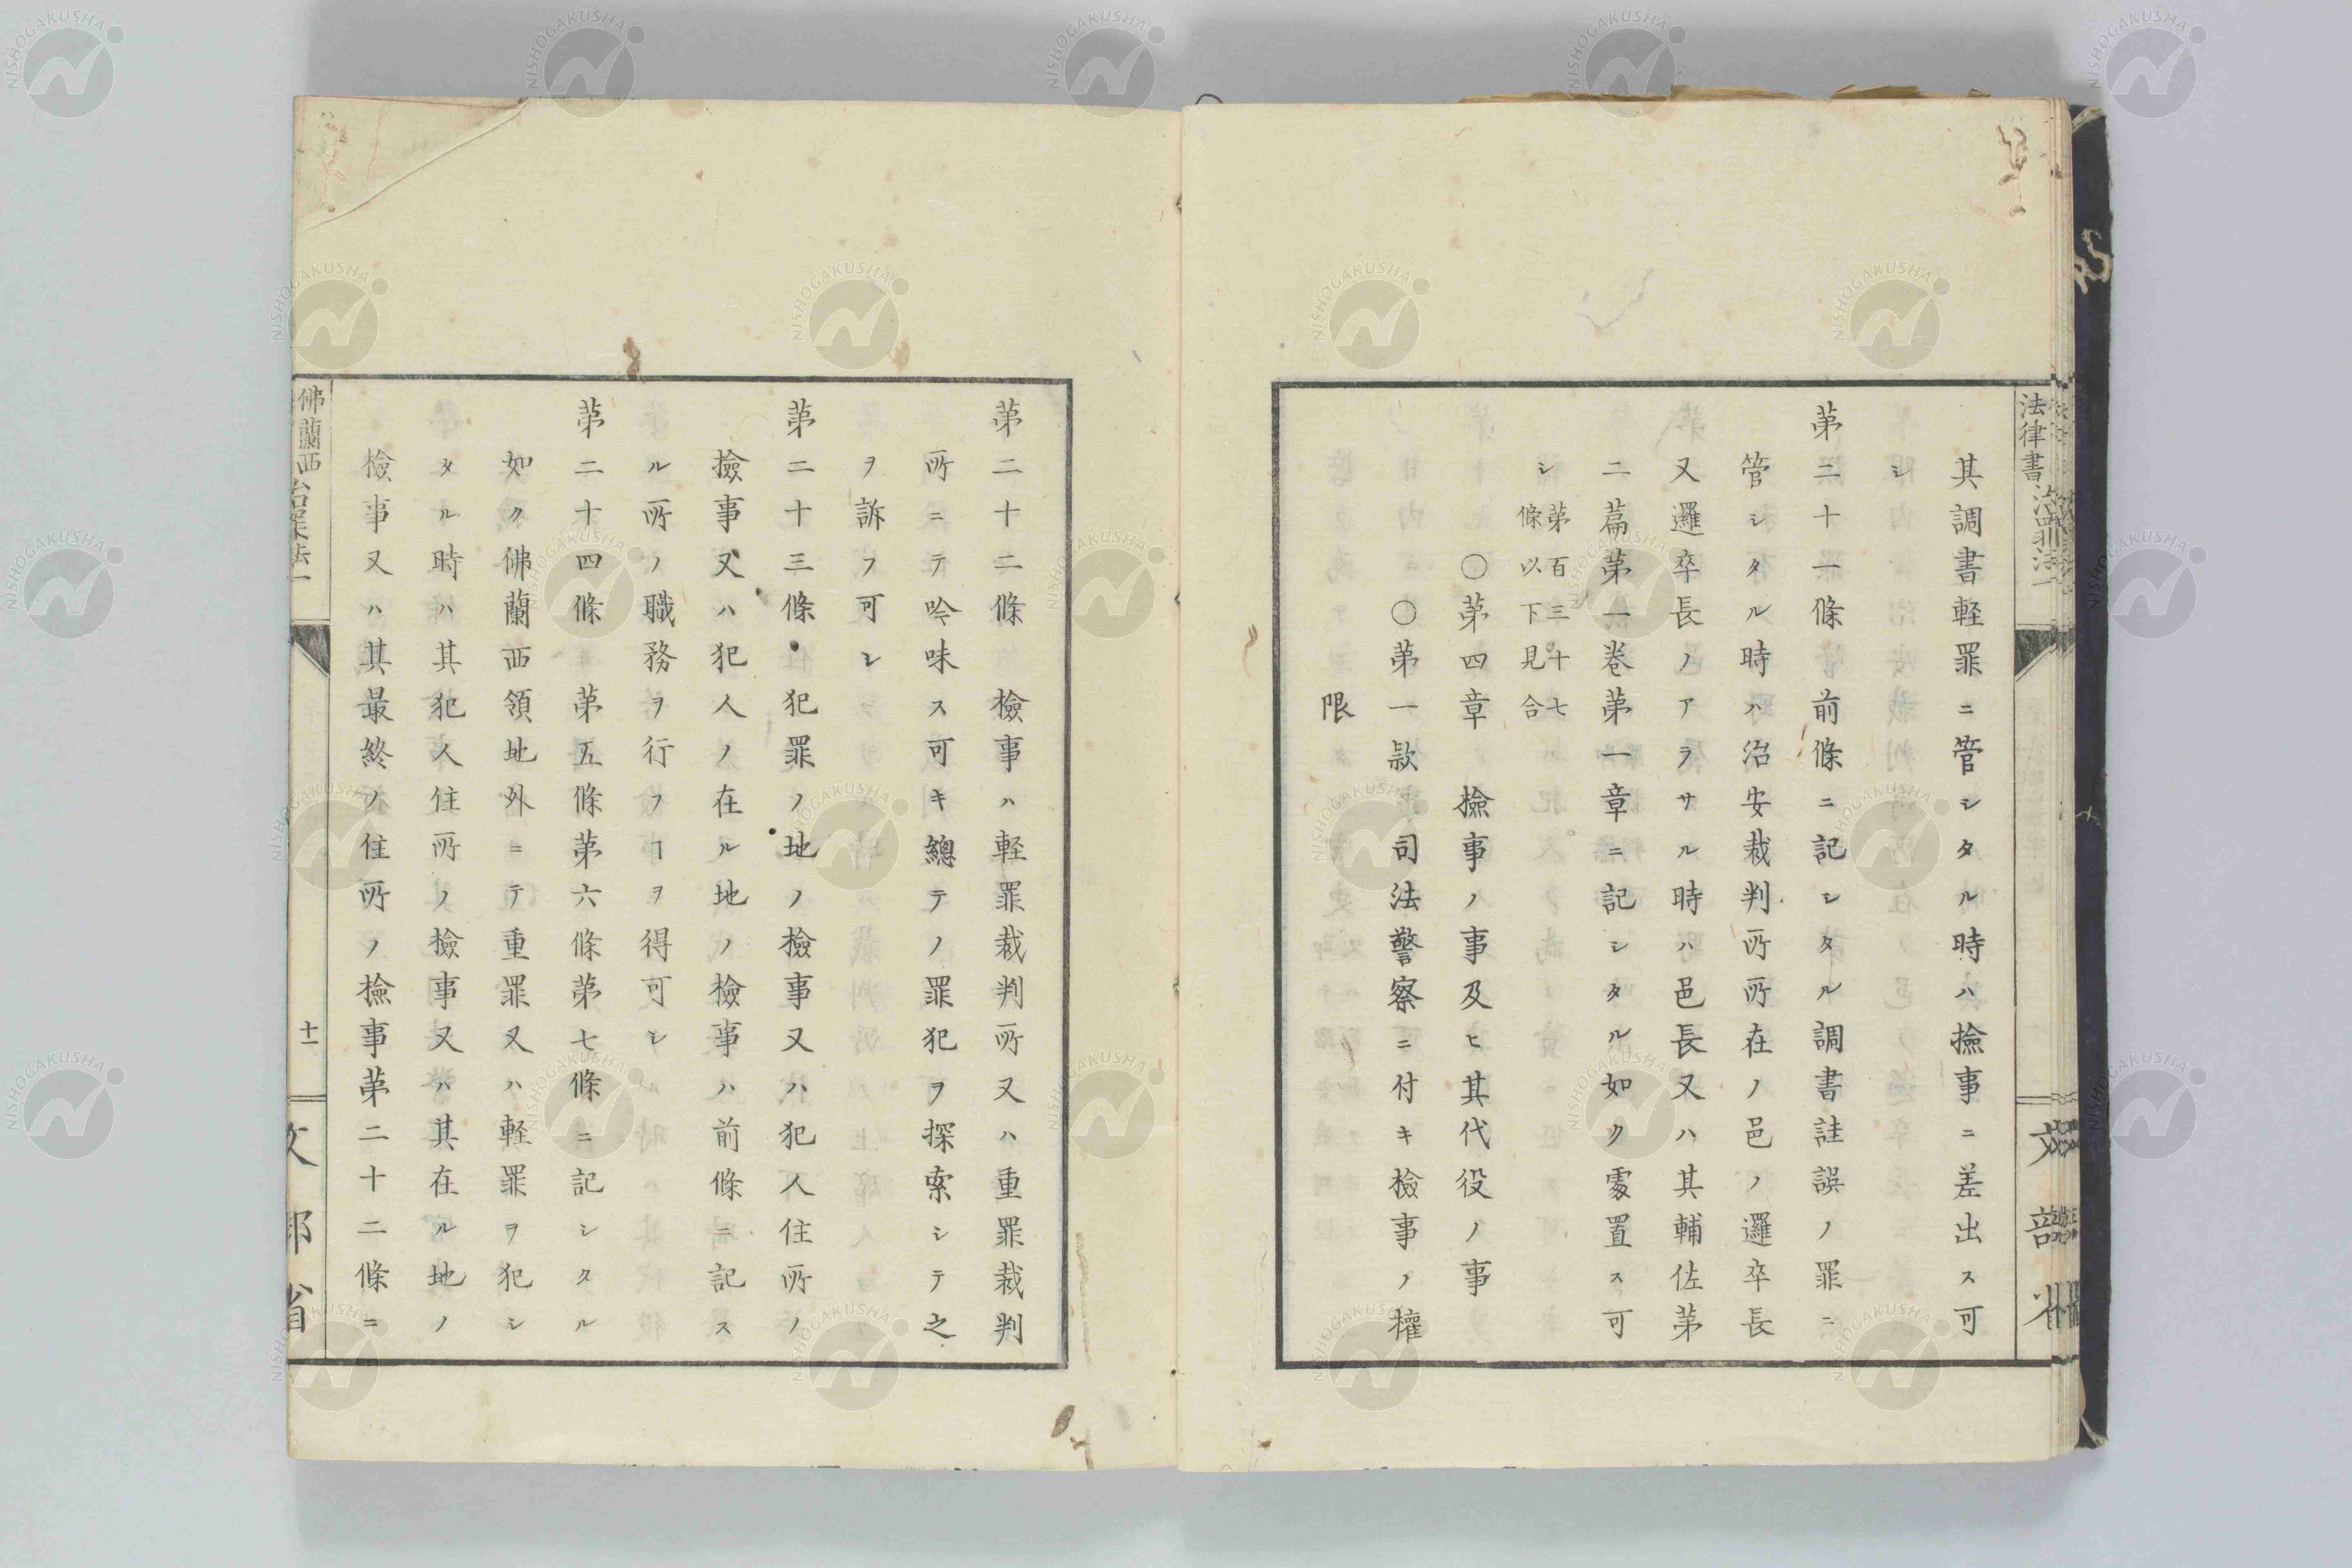 法律書 治罪法一
文部省
其調書軽罪ニ管シタル時ハ撿事ニ差出ス可
シ
第二十一條 前條ニ記シタル調書註誤ノ罪ニ
管シタル時ハ治安裁判所所在ノ邑ノ邏卒長
又邏卒長ノアラサル時ハ邑長又ハ其輔佐第
二篇第一巻第一章ニ記シタル如ク處置ス可
シ 第百三十七
條以下見合
〇第四章 撿事ノ事及ヒ其代役ノ事
〇第一款 司法警察ニ付キ檢事ノ權
限
第二十二條 檢事ハ軽罪裁判所又ハ重罪裁判
所ニテ吟味ス可キ總テノ罪犯ヲ探索シテ之
ヲ訴フ可シ
第二十三條 犯罪ノ地ノ檢事又ハ犯人住所ノ
撿事又ハ犯人ノ在ル地ノ檢事ハ前條ニ記ス
ル所ノ職務ヲ行フヿヲ得可シ
第二十四條 第五條第六條第七條ニ記シタル
如ク佛蘭西領地外ニテ重罪又ハ軽罪ヲ犯シ
タル時ハ其犯人住所ノ檢事又ハ其在ル地ノ
檢事又ハ其最終ノ住所ノ撿事第二十二條ニ
佛蘭西治罪法一
十一
文部省
NISHOGAKUSHA